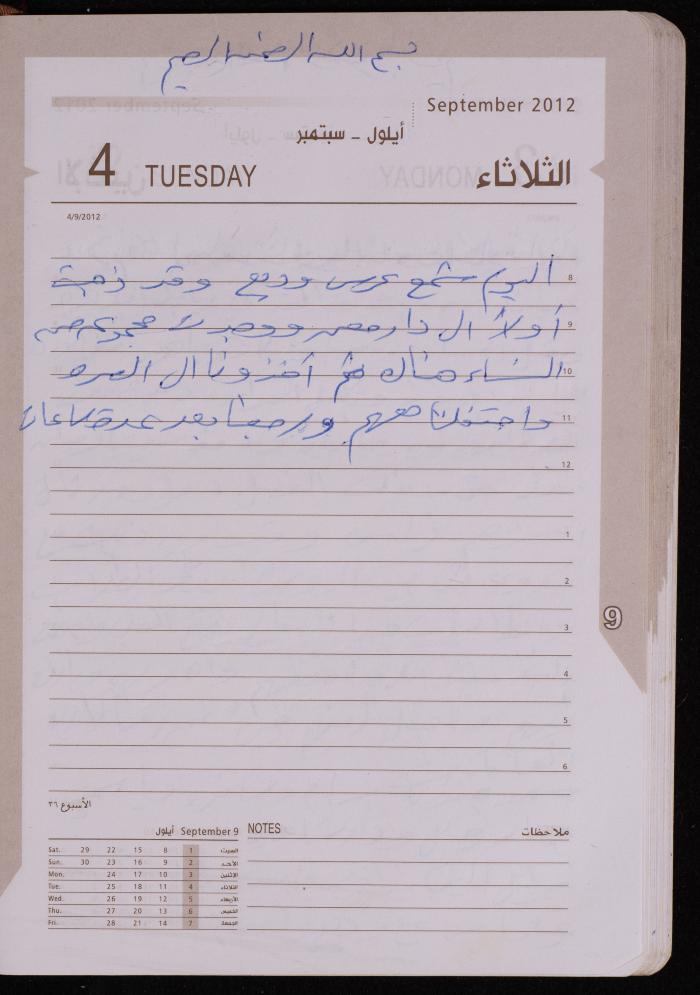 بسم الله الرحمن الرحيم
September 2012
أيلول - سبتمبر
4 TUESDAY الثلاثاء
4/9/2012
اليوم شمع عرس وديع وقد ذهبت 8
أولاً ال دار معن ووجدت مجموعة من 9
النساء هناك ثم أخذونا ال العرس 10
واحتفلنا معهم ورجعنا بعد عدة ساعات 11
12
1
2
3
9
4
5
6
الأسبوع ٣٦
September 9 أيلول
NOTES ملاحظات
Sat. 29 22 15 8 1 السبت
Sun. 30 23 16 9 2 الأحد
Mon. 24 17 10 3 الإثنين
Tue. 25 18 11 4 الثلاثاء
Wed. 26 19 12 5 الأربعاء
Thu. 27 20 13 6 الخميس
Fri. 28 21 14 7 الجمعة